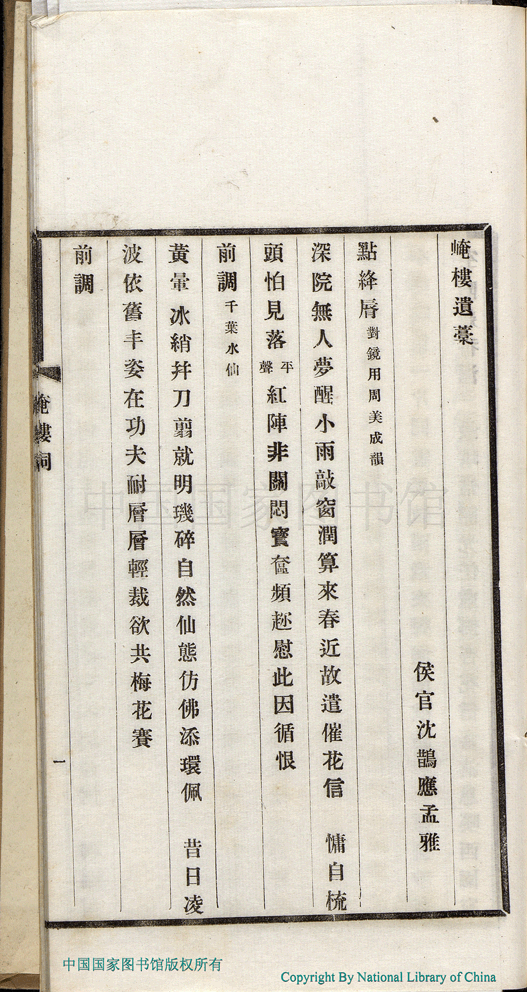 崦樓遺藁
侯官沈鵲應孟雅
點絳脣 對鏡用周美成韻
深院無人夢醒小雨敲窗潤算來春近故遣催花信 慵自梳
頭怕見落平聲紅陣非關悶寶奩頻趂慰此因循恨
前調 千葉水仙
黃暈冰綃幷刀翦就明璣碎自然仙態仿佛添環佩 昔日凌
波依舊丰姿在功夫耐層層輕裁欲共梅花賽
前調
崦樓詞
一
中国国家图书馆
中国国家图书馆版权所有
Copyright By National Library of China